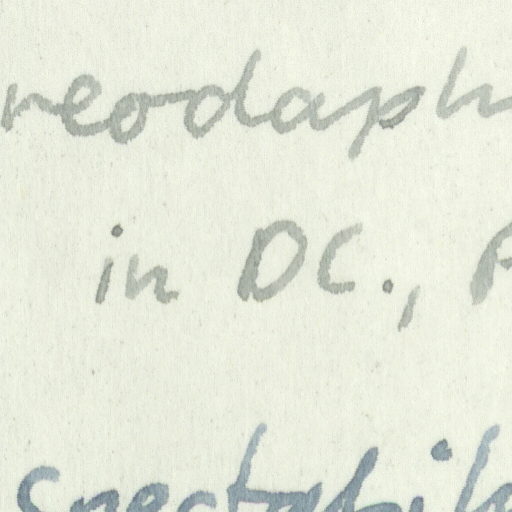 reodaph
in DC., P
spectabile